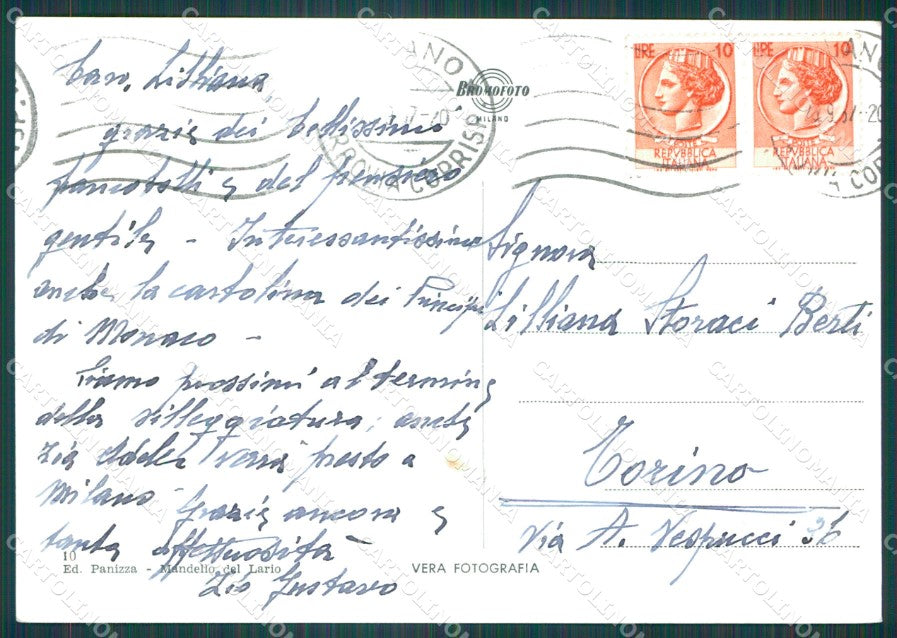 Cara Lilliana
grazie dei bellissimi
francobolli e del pensiero
gentile - Interessantissima
anche la cartolina dei Principi
di Monaco -
Siamo prossimi al termine
della villeggiatura, anche
zia Adele verrà presto a
Milano - Grazie ancora e
tante affettuosità -
Zio Gustavo
10
Ed. Panizza - Mandello del Lario
VERA FOTOGRAFIA
BROMOFOTO
MILANO
LIRE 10
REPVBBLICA
ITALIANA
LIRE 10
REPVBBLICA
ITALIANA
Signora
Lilliana Storaci Berti
Torino
Via A. Vespucci 36
CARTOLINOMANIA